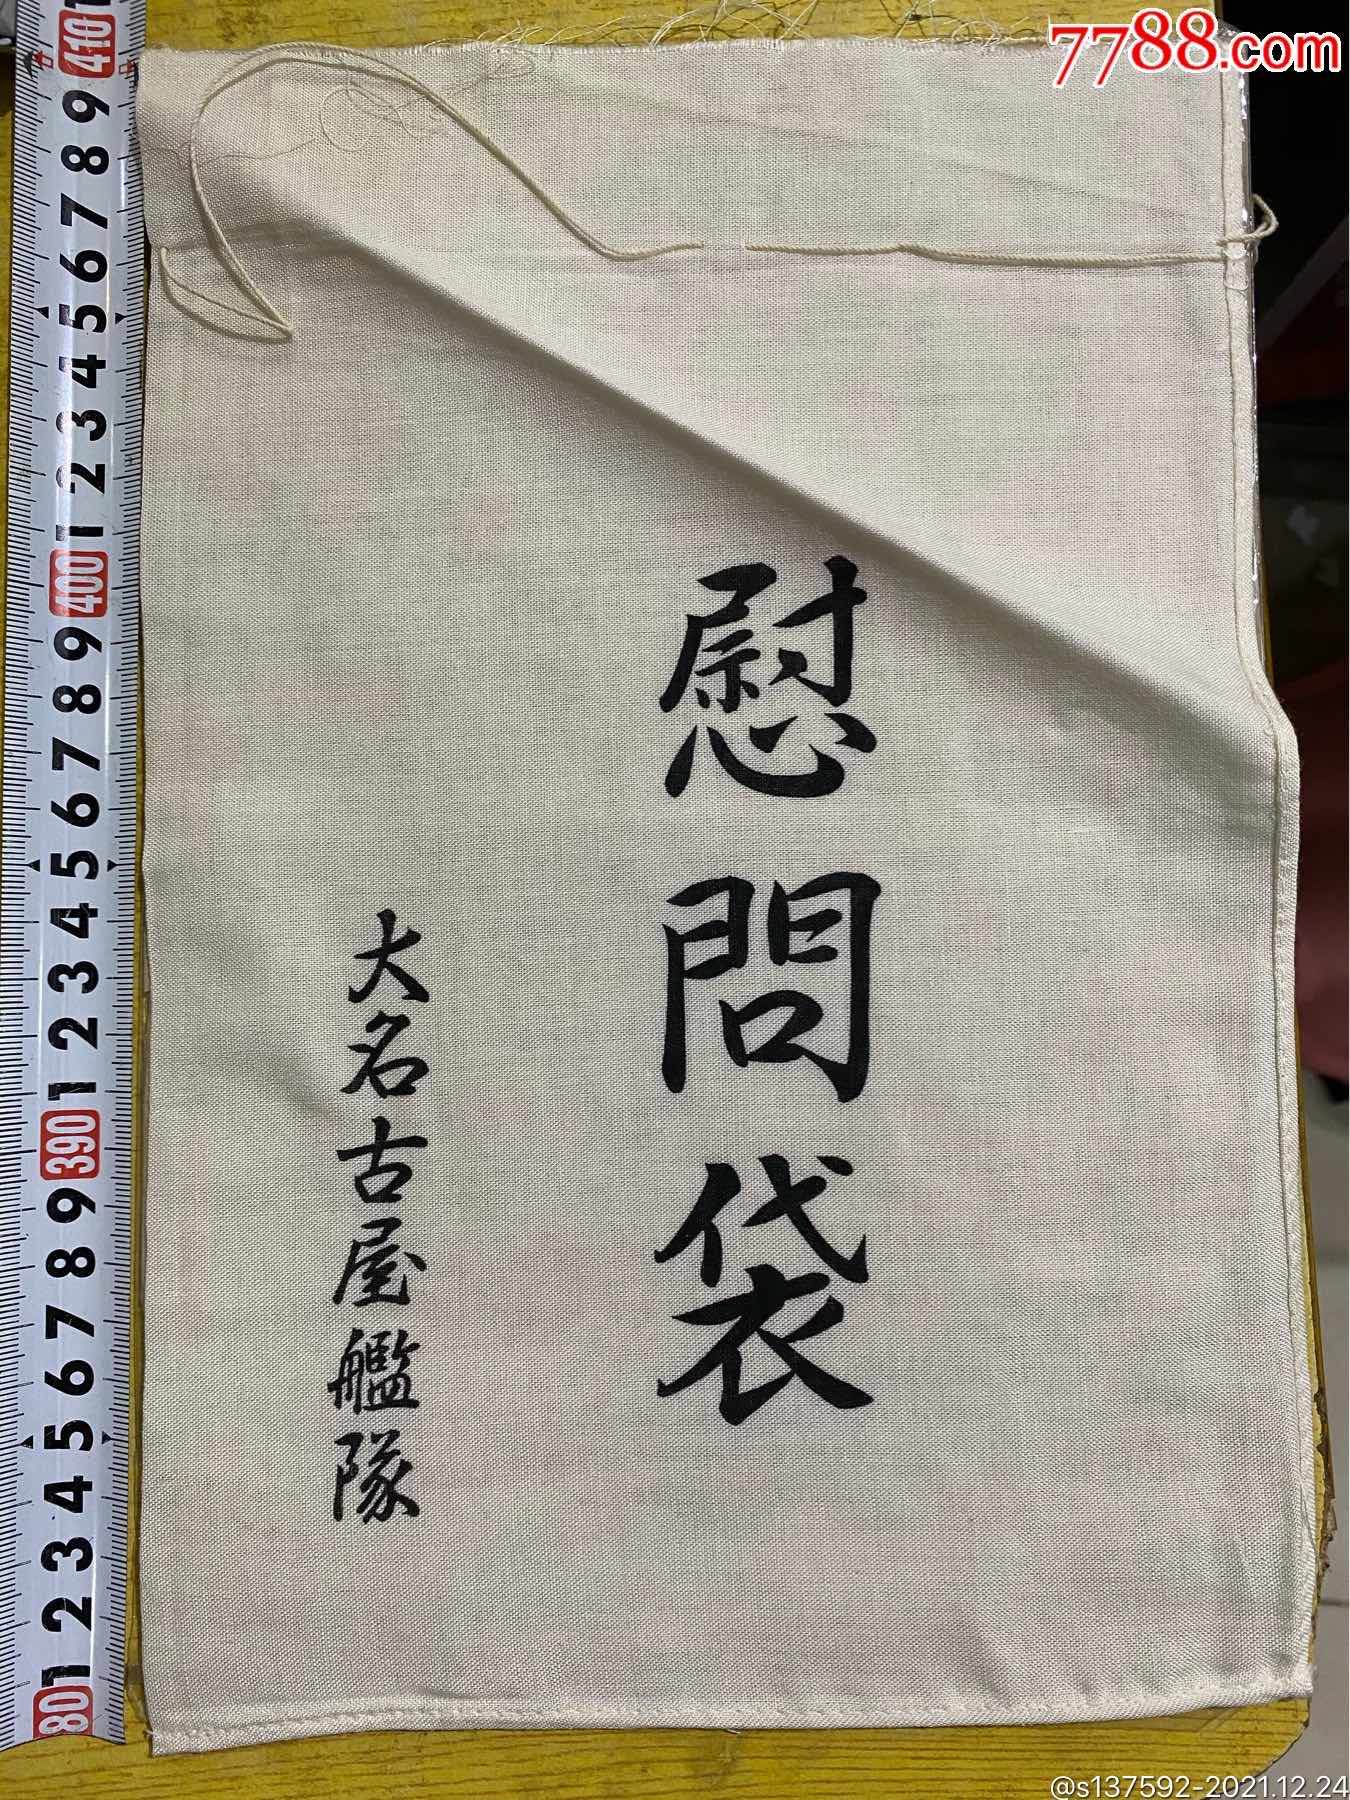 7788.com
慰問袋
大名古屋艦隊
410
9
8
7
6
5
4
3
2
1
400
9
8
7
6
5
4
3
2
1
390
9
8
7
6
5
4
3
2
1
80
@s137592-2021.12.24